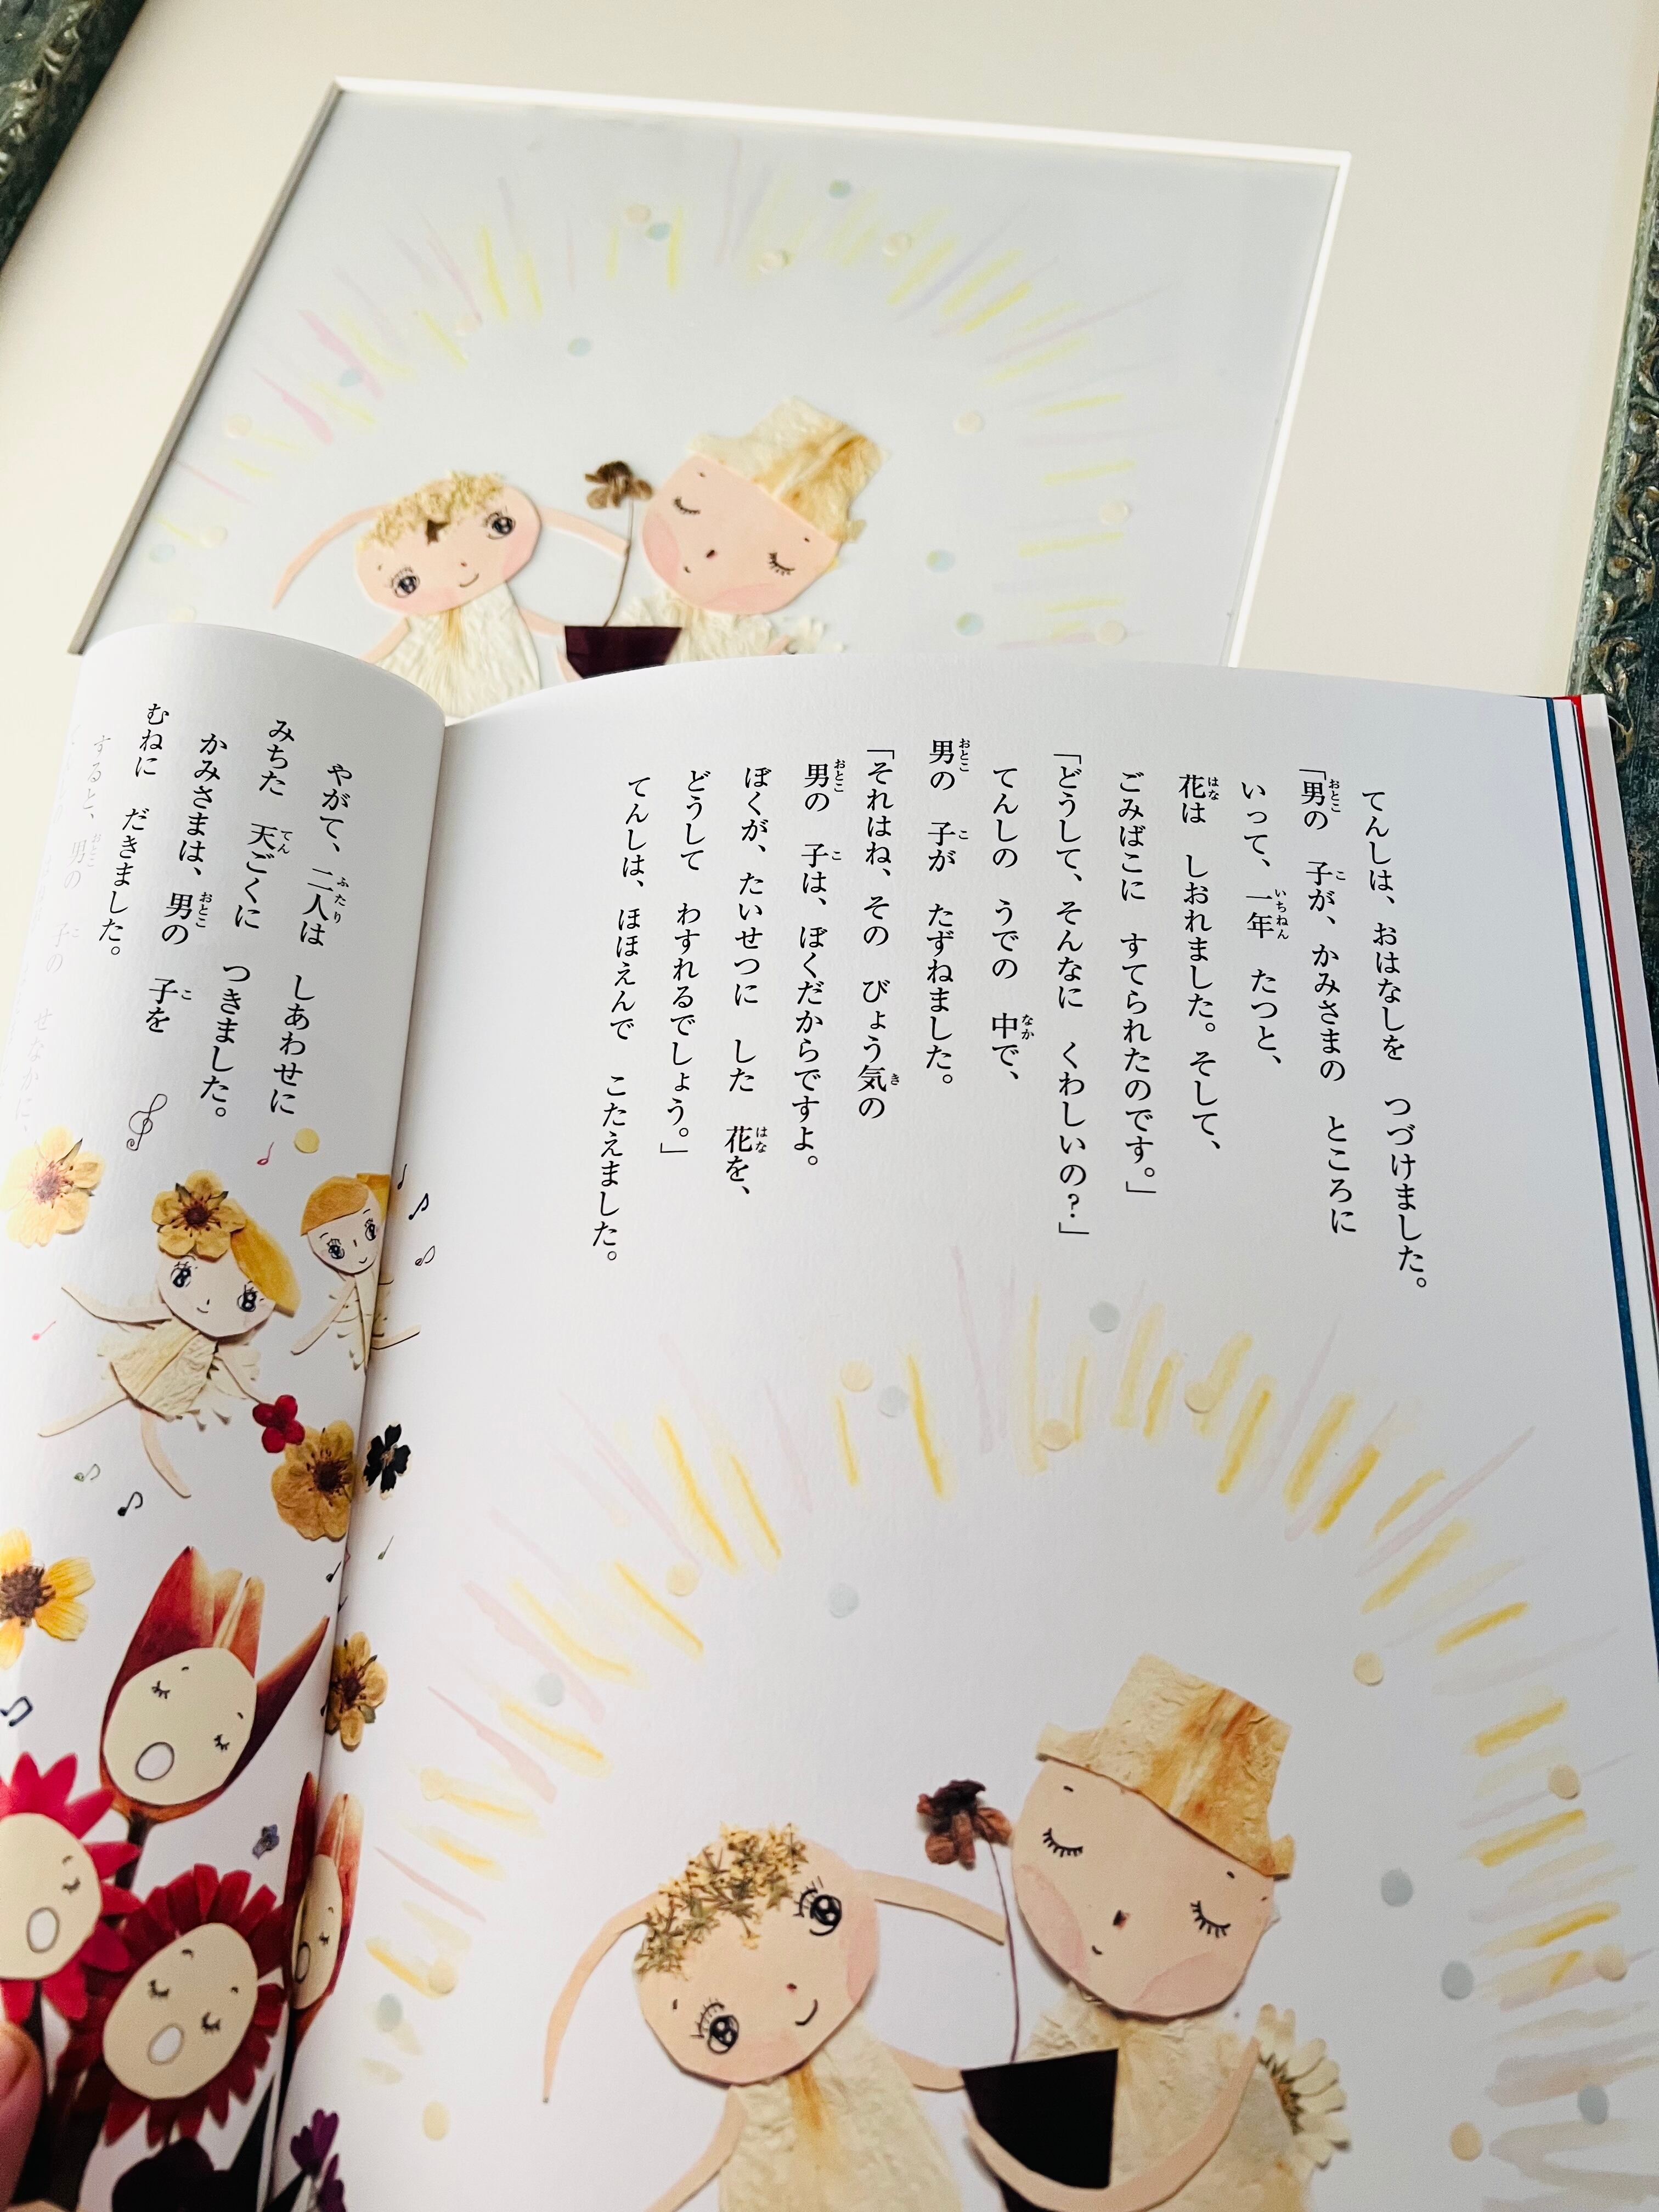 てんしは、おはなしを つづけました。
「男の 子が、かみさまの ところに
いって、一年 たつと、
花は しおれました。そして、
ごみばこに すてられたのです。」
「どうして、そんなに くわしいの？」
てんしの うでの 中で、
男の 子が たずねました。
「それはね、その びょう気の
男の 子は、ぼくだからですよ。
ぼくが、たいせつに した 花を、
どうして わすれるでしょう。」
てんしは、ほほえんで こたえました。
やがて、二人は しあわせに
みちた 天ごくに つきました。
かみさまは、男の 子を
むねに だきました。
すると、男の 子の せなかに、